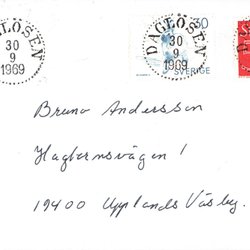 DAGLÖSEN
30
9
1969
50
SVERIGE
DAGLÖSEN
30
9
1969
Bruno Anderssson
Hagbernsvägen 1
19400 Upplands Väsby.